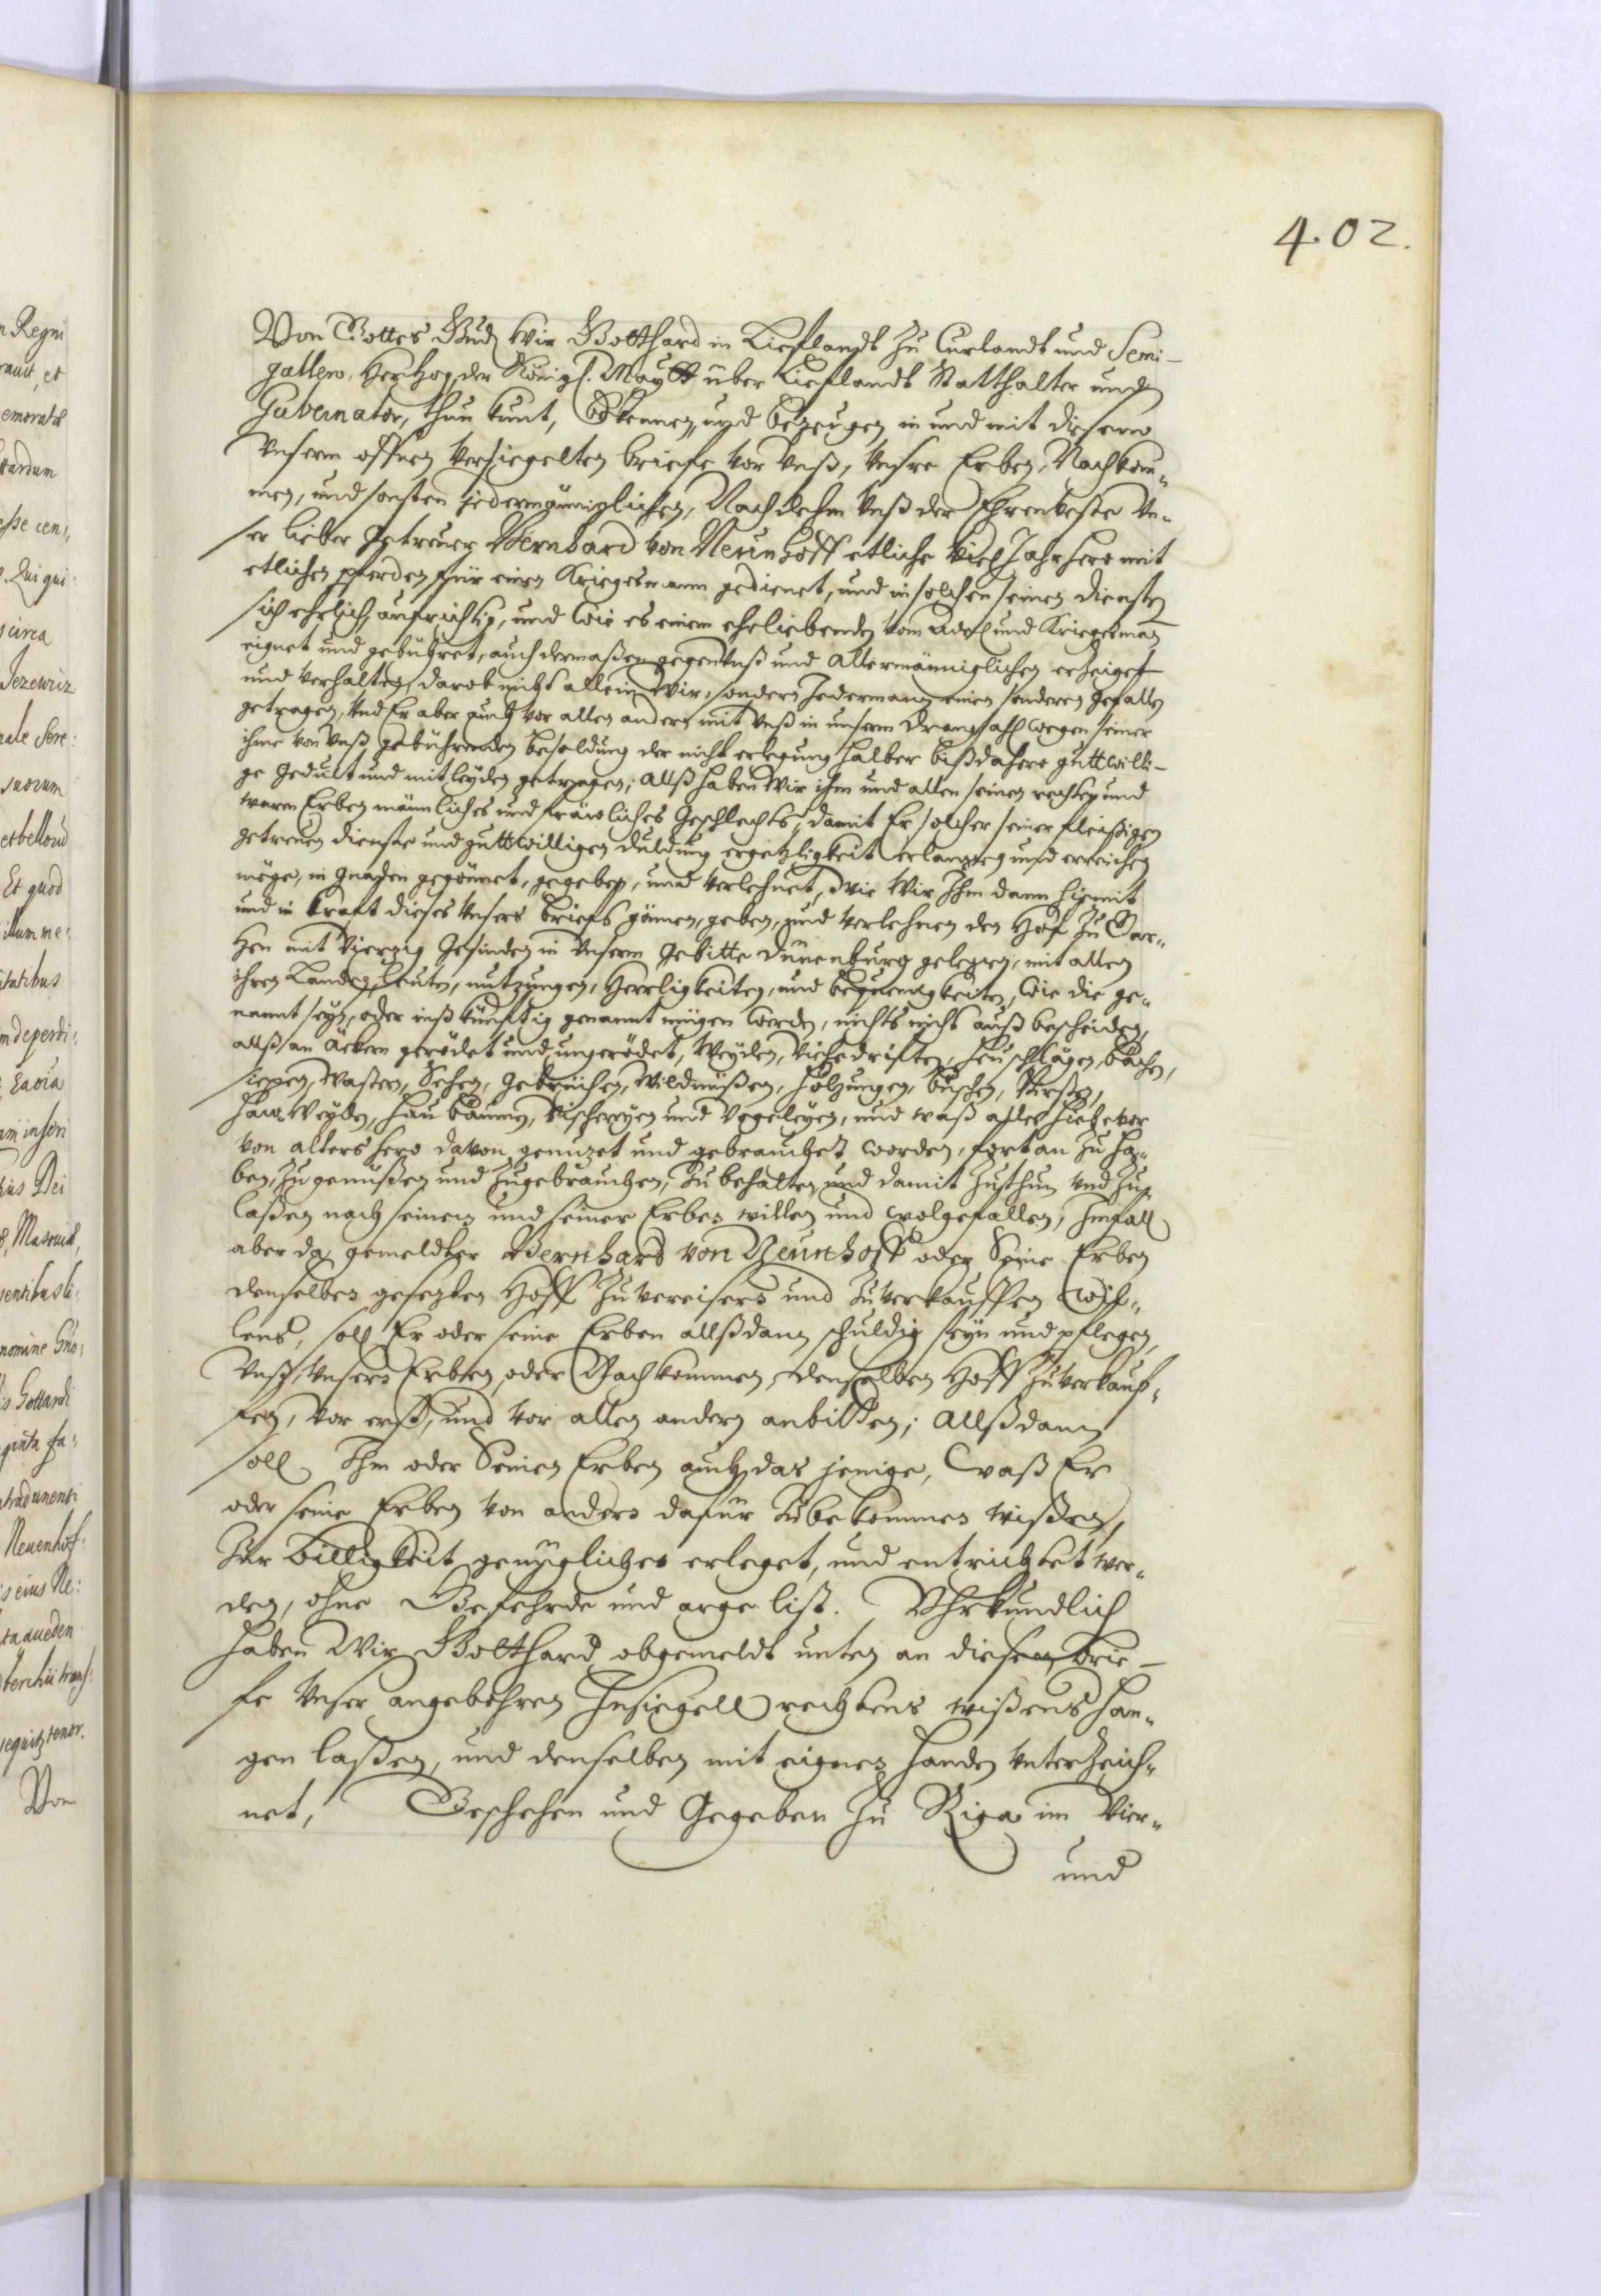 402.
Von Gottes Gnad Wir Gotthard in Liefflandt zu Curlandt und Semi-
gallen, Herzog, der Königl. Maytt über Lieflandt Statthalter und
Gubernator, thun kunt, bekennen, und bezeugen in und mit diesem
Unserm offnen versiegelten briefe vor Unß, Unsre Erben, Nachkom-
men, und sonsten jedermänniglichen, Nachdehm Unß der Ehrenveste Un-
ser lieber Getreuer Bernhard von Neunhoff etliche viel Jahr hero mit
etlichen pferden für einen Kriegesmann gedienet, und in solchen seinen diensten
sich ehrlich, aufrichtig, und wie es einem ehrliebenden vom Adel und Kriegesman
eignet und gebühret, auch dermaßen gegen Unß und Allermänniglichen erzeiget
und verhalten, darob nicht allein Wir, sondern Jedermann einen sonderen gefallen
getragen, Und Er aber auch vor allen andern mit Unß in unserm drangsahl wegen seiner
ihme von Unß gebührenden besoldung der nicht erlegung halber bißdahero guttwilli-
ge gedult und mitleyden getragen; Allß haben Wir ihm und allen seinen rechten und
waren Erben männliches und fräwliches Geschlechts, damit Er solcher seiner fleißigen
getreuen dienste und guttwilligen duldung ergetzligkeit erlangen und erreichen
möge, in gnaden gegönnet, gegeben, und verlehnet, Wie Wir Ihm dann hiemit
und in kraft dieses Unsers briefs gönnen, geben, und verlehnen den Hof zu
hen mit vierzig Gesinden in Unserm Gebitte Dünenburg gelegen, mit allen
ihren Landen, Leuten, nutzungen, Herrligkeiten, und bequemigkeiten, Wie die ge-
nannt seyn, oder inß künftig genannt mögen werden, nichts nicht auß bescheiden,
allß an Äckern gerödet und ungerödet, Weyden, Viehedriften, Heuschlägen, bächen,
siepen, Wasten, Sehen, Gebrüchen, Wildnüßen, Holzungen, büschen, Birsen,
Haw Weyden, Hau bäumen, Vischereyen und Vogeleyen, und waß alles hiebevor
von alters hero davon genuzet und gebrauchet worden, fortan zu ha-
ben, zu genüßen und zugebrauchen, zu behalten und damit zuthun und zu
laßen nach seinem und seiner Erben willen und wolgefallen, Imfall
aber da gemeldter Bernhard von Neunhoff oder Seine Erben
denselben gesezten Hoff zu vereusern und zu verkauffen wil-
lens, soll Er oder seine Erben allßdann schuldig seyn und pflegen,
Unß, Unsern Erben, oder Nachkommen, denselben Hoff zu verkauf-
fen, vor erst, und vor allen andern anbitten; Allßdann
soll Ihm oder Seinen Erben auch das jenige, Waß Er
oder seine Erben von andern dafür zu bekommen wißen,
zur billigkeit genüglichen erleget, und entrichtet wer-
den, ohne Gefehrde und arge list. Uhrkundlich
haben Wir Gotthard obgemeldt unten an diesen brie-
fe Unser angebohren Insiegell rechtens wißens han-
gen laßen, und denselben mit eignen Handen Unterzeich-
net, Geschehen und Gegeben zu Riga im Vier-
und